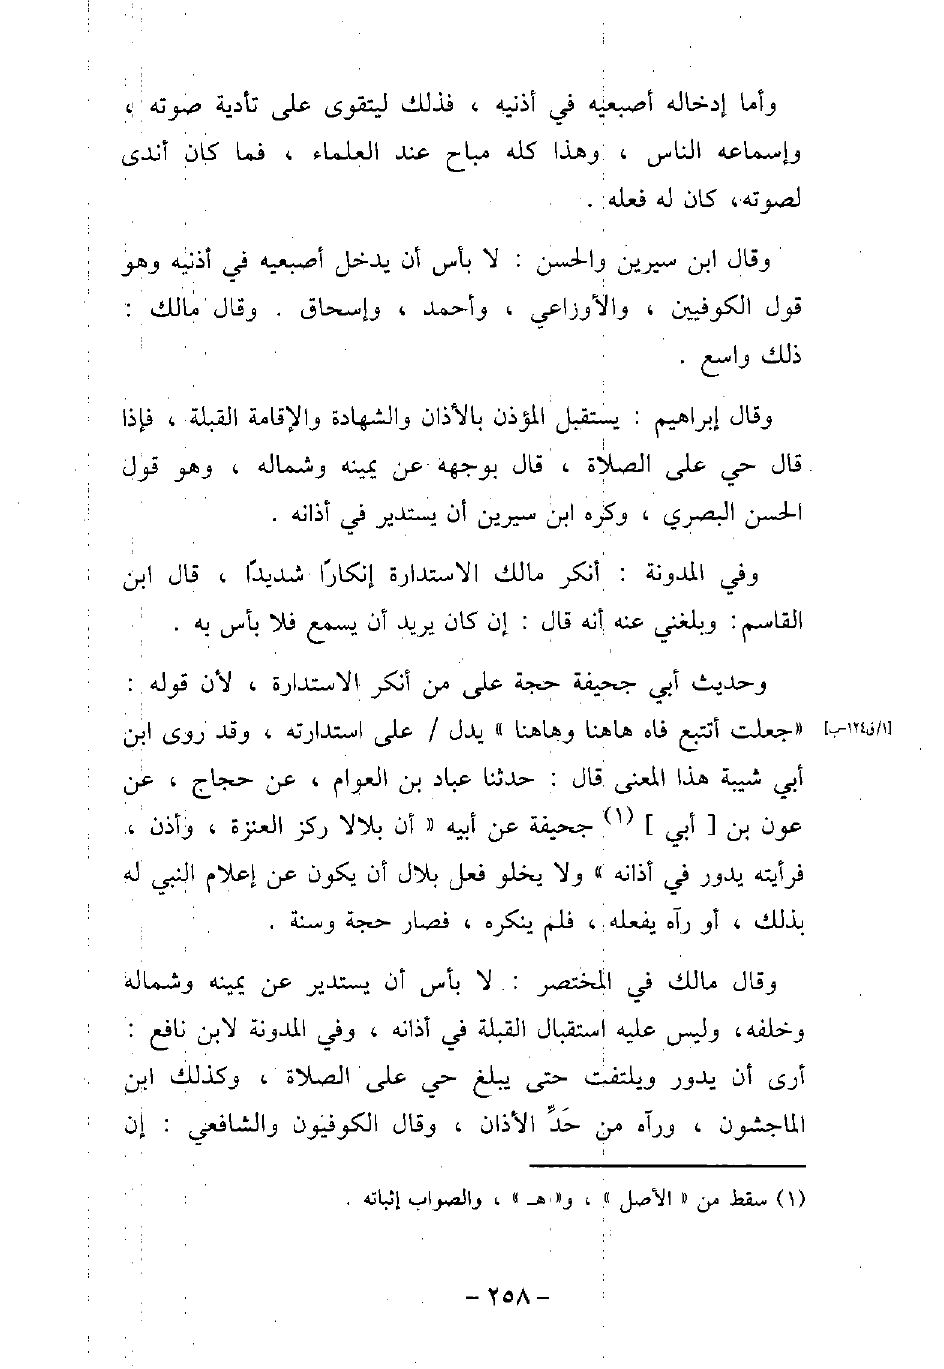 وأما إدخاله أصبعيه في أذنيه ، فذلك ليتقوى على تأدية صوته ،
وإسماعه الناس ، وهذا كله مباح عند العلماء ، فما كان أندى
لصوته، كان له فعله .
وقال ابن سيرين والحسن : لا بأس أن يدخل أصبعيه في أذنيه وهو
قول الكوفيين ، والأوزاعي ، وأحمد ، وإسحاق . وقال مالك :
ذلك واسع .
وقال إبراهيم : يستقبل المؤذن بالأذان والشهادة والإقامة القبلة ، فإذا
قال حي على الصلاة ، قال بوجهه عن يمينه وشماله ، وهو قول
الحسن البصري ، وكره ابن سيرين أن يستدير في أذانه .
وفي المدونة : أنكر مالك الاستدارة إنكارًا شديدًا ، قال ابن
القاسم: وبلغني عنه أنه قال : إن كان يريد أن يسمع فلا بأس به .
وحديث أبي جحيفة حجة على من أنكر الاستدارة ، لأن قوله :
«جعلت أتتبع فاه هاهنا وهاهنا » يدل / على استدارته ، وقد روى ابن
[١/ق١٢٤-ب]
أبي شيبة هذا المعنى قال : حدثنا عباد بن العوام ، عن حجاج ، عن
عون بن [ أبي ] (١) جحيفة عن أبيه « أن بلالا ركز العنزة ، وأذن ،
فرأيته يدور في أذانه » ولا يخلو فعل بلال أن يكون عن إعلام النبي له
بذلك ، أو رآه يفعله ، فلم ينكره ، فصار حجة وسنة .
وقال مالك في المختصر : لا بأس أن يستدير عن يمينه وشماله
وخلفه، وليس عليه استقبال القبلة في أذانه ، وفي المدونة لابن نافع :
أرى أن يدور ويلتفت حتى يبلغ حي على الصلاة ، وكذلك ابن
الماجشون ، ورآه من حَدِّ الأذان ، وقال الكوفيون والشافعي : إن
(١) سقط من « الأصل » ، و« هـ » ، والصواب إثباته .
- ٢٥٨ -